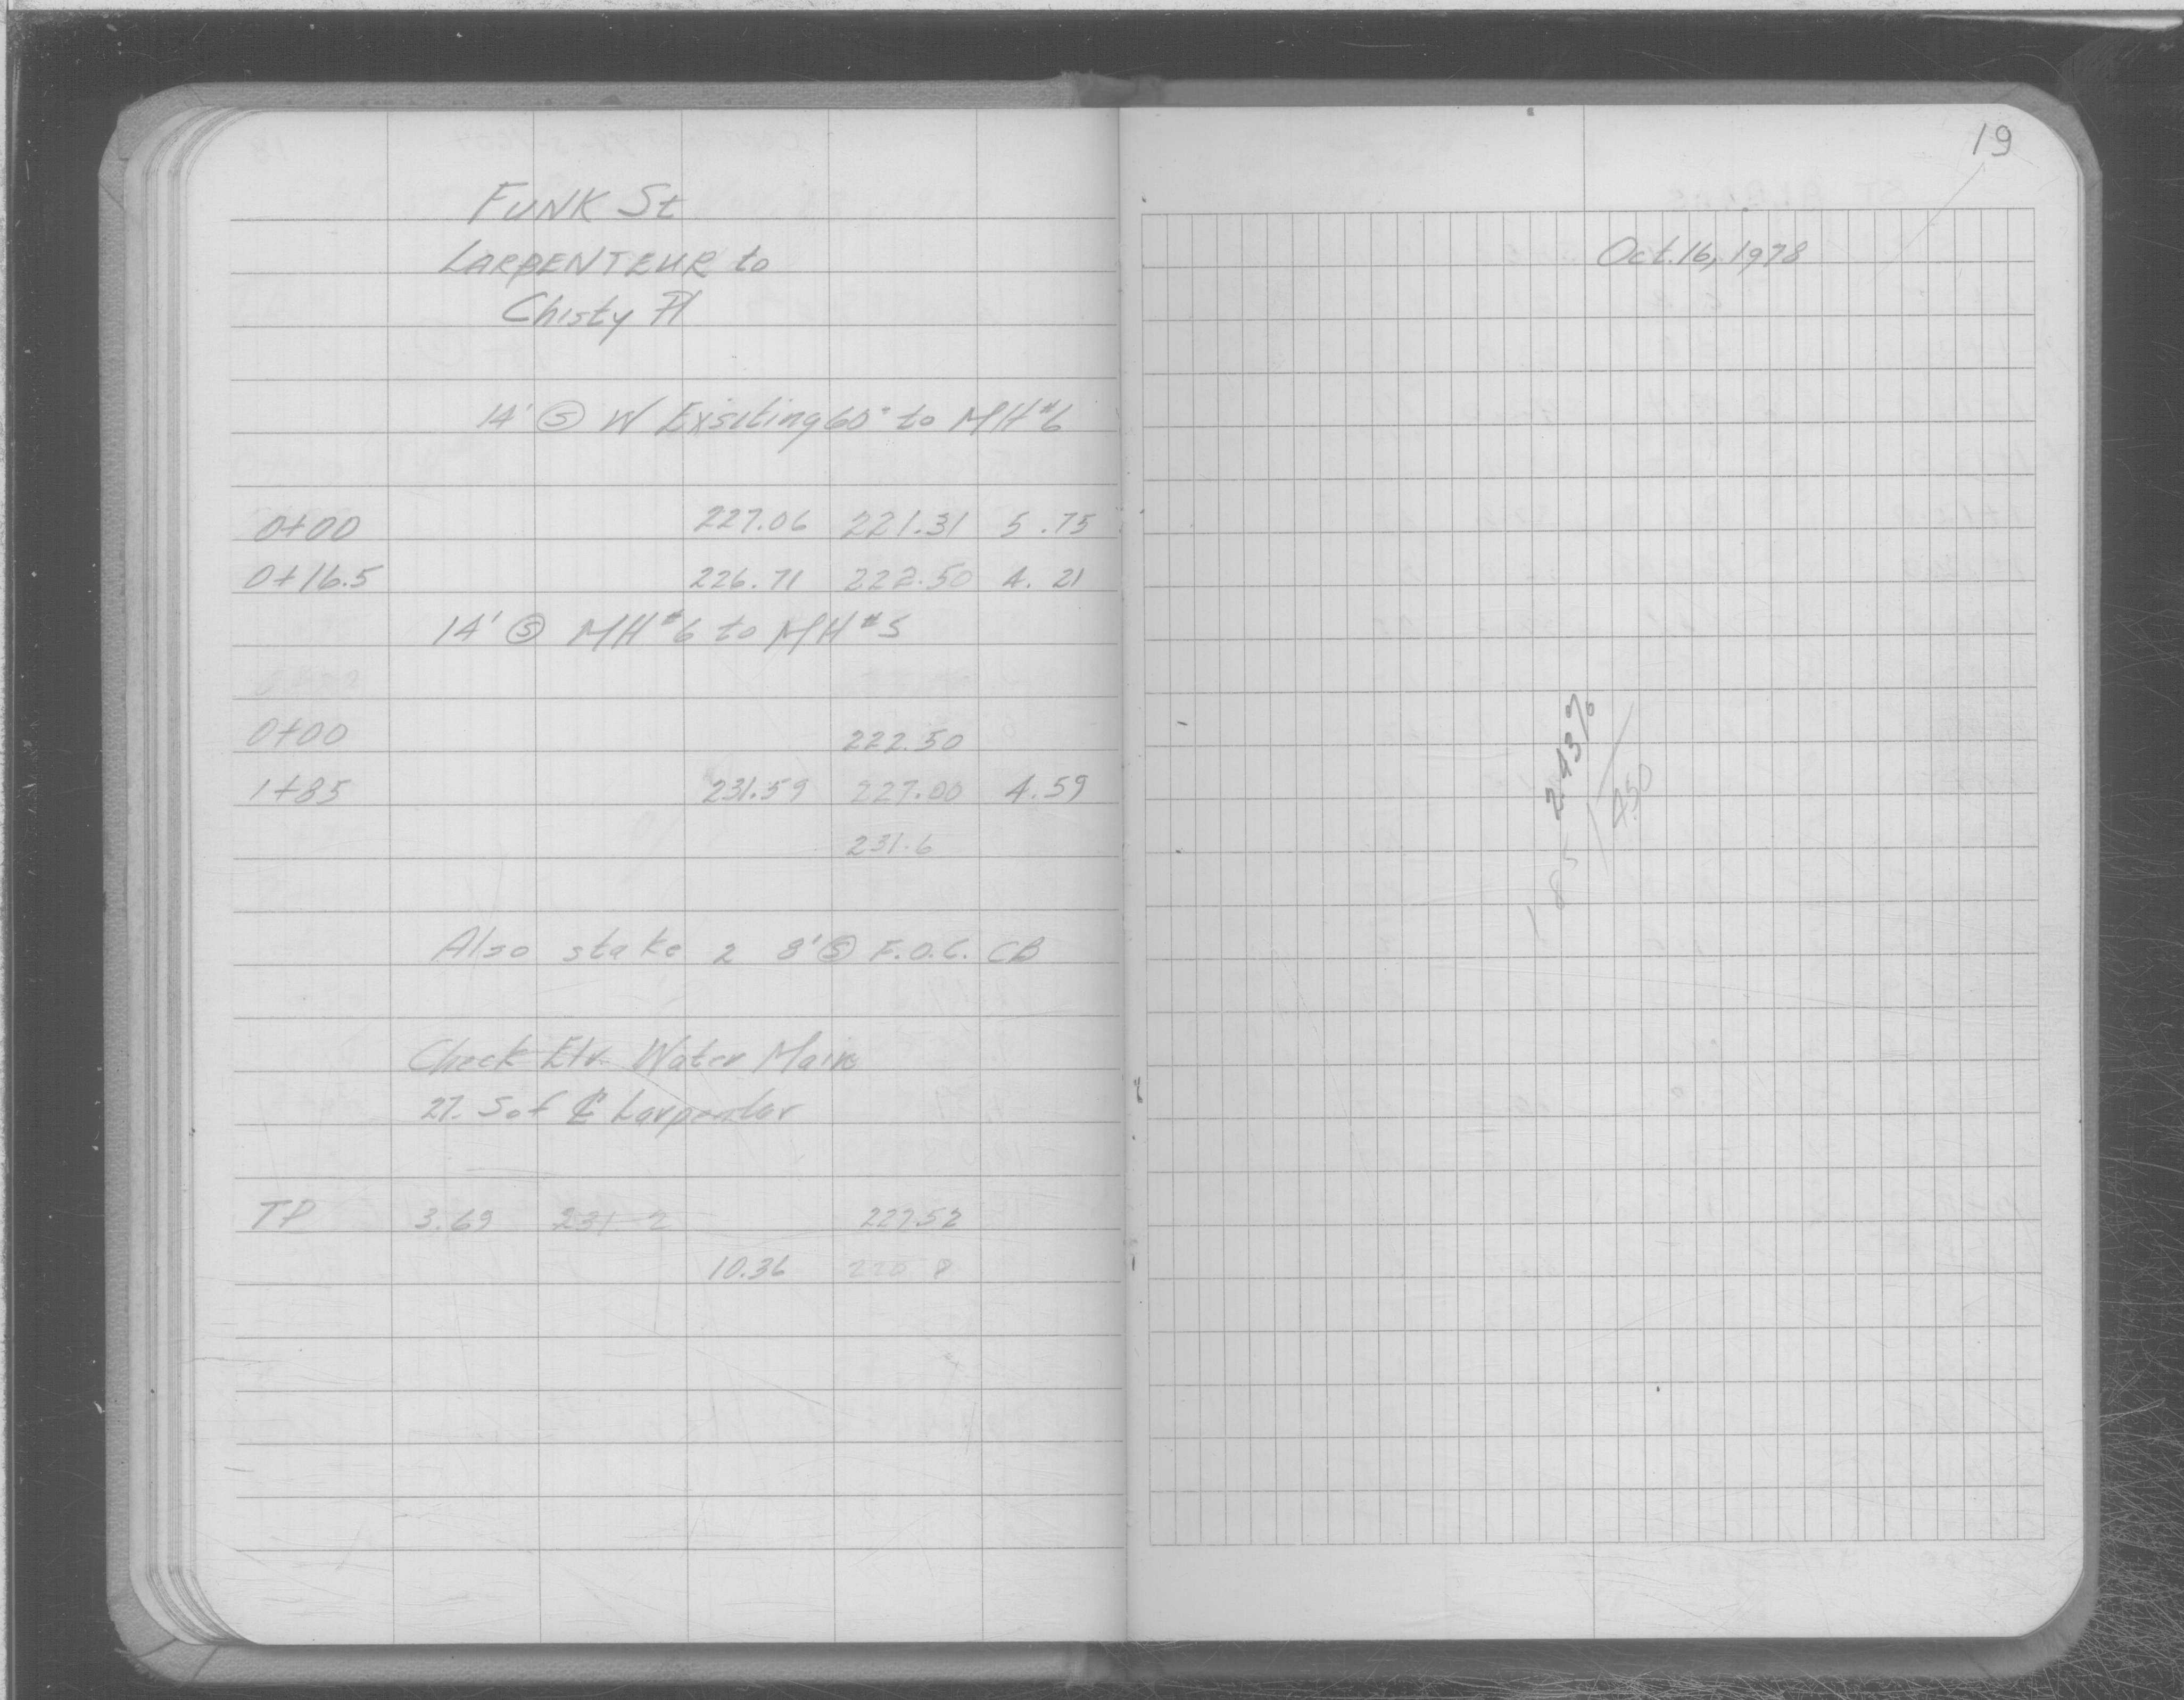 FUNK St
LARPENTEUR to
Chisty Pl
14' Ⓢ W Exsiting 60" to MH#6
0+00 227.06 221.31 5.75
0+16.5 226.71 222.50 4.21
14' Ⓢ MH#6 to MH#5
0+00 222.50
1+85 231.59 227.00 4.59
231.6
Also stake 2 8' Ⓢ F.O.C. CB
Check Elv. Water Main
27. S of ℄ Larpentor
TP 3.69 227.52
10.36
19
Oct. 16, 1978
2.43%
185 / 4.50